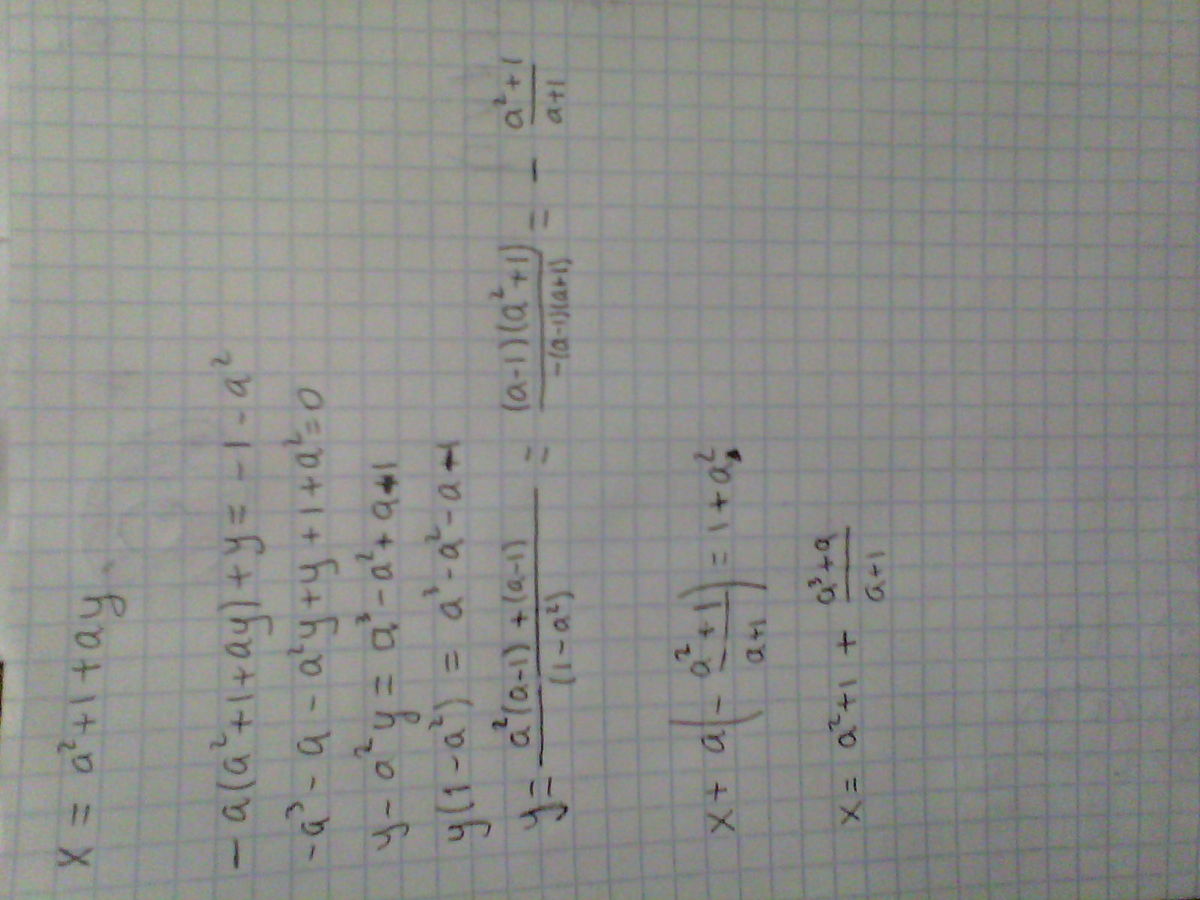 x = a²+1+ay
-a(a²+1+ay)+y = -1-a²
-a³-a-a²y+y+1+a²=0
y-a²y = a³-a²+a+1
y(1-a²) = a³-a²-a+1
y= a²(a-1)+(a-1)/(1-a²) = (a-1)(a²+1)/-(a-1)(a+1) = - a²+1/a+1
x+ a(- a²+1/a+1) = 1+a²
x= a²+1 + a³+a/a+1